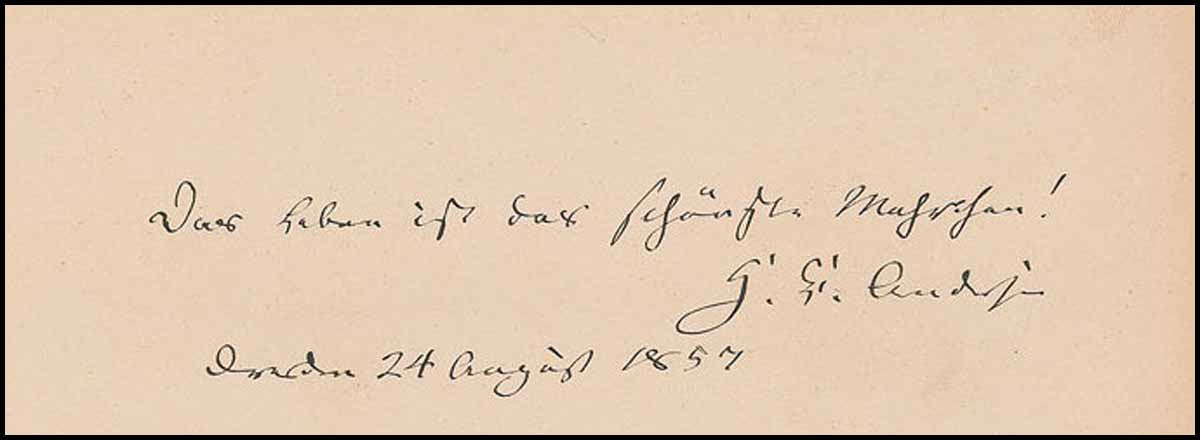 Das Leben ist das schönste Mahrchen!
H. C. Andersen
Dresden 24 August 1857